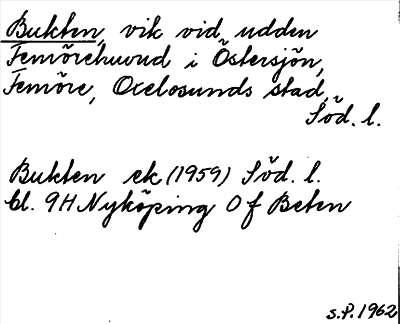 Bukten, vik vid udden
Femörehuvud i Östersjön,
Femöre, Oxelösunds stad,
Söd. l.
Bukten ek (1959) Söd. l.
bl. 9H Nyköping O f Beten
S.P. 1962